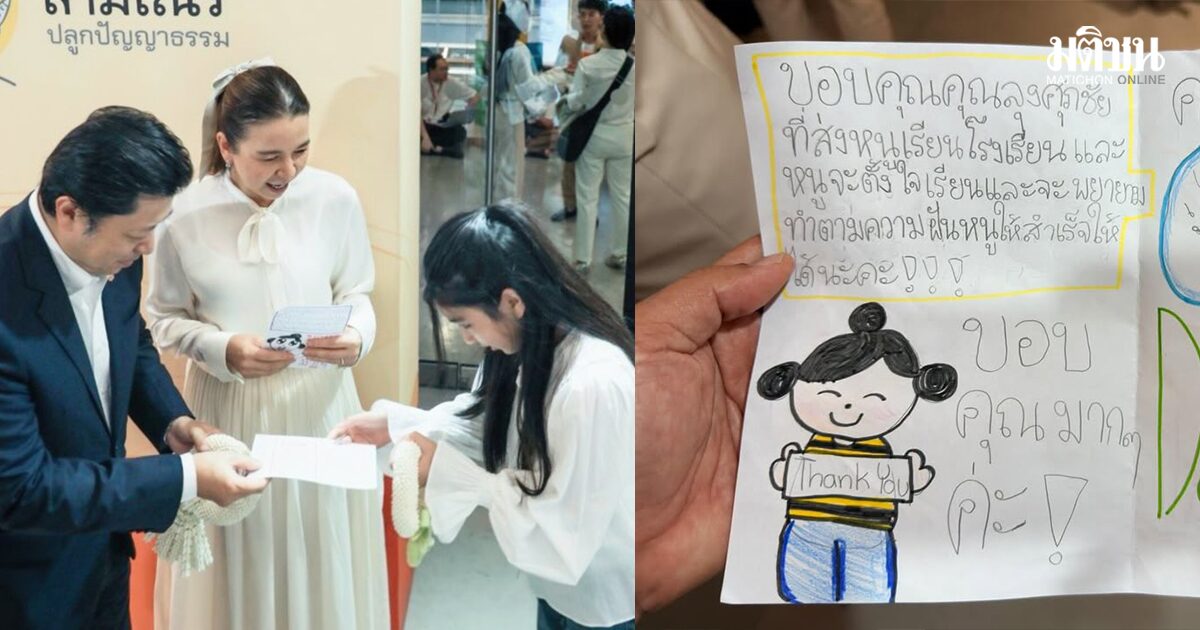 สามเณร
ปลูกปัญญาธรรม
มติชน
MATICHON ONLINE
ขอบคุณคุณลุงศุภชัย
ที่ส่งหนูเรียนโรงเรียน และ
หนูจะตั้งใจเรียนและจะพยายาม
ทำตามความฝันหนูให้สำเร็จให้
ได้นะคะ!!!
ขอบ
คุณ มากๆ
ค่ะ!
Thank You